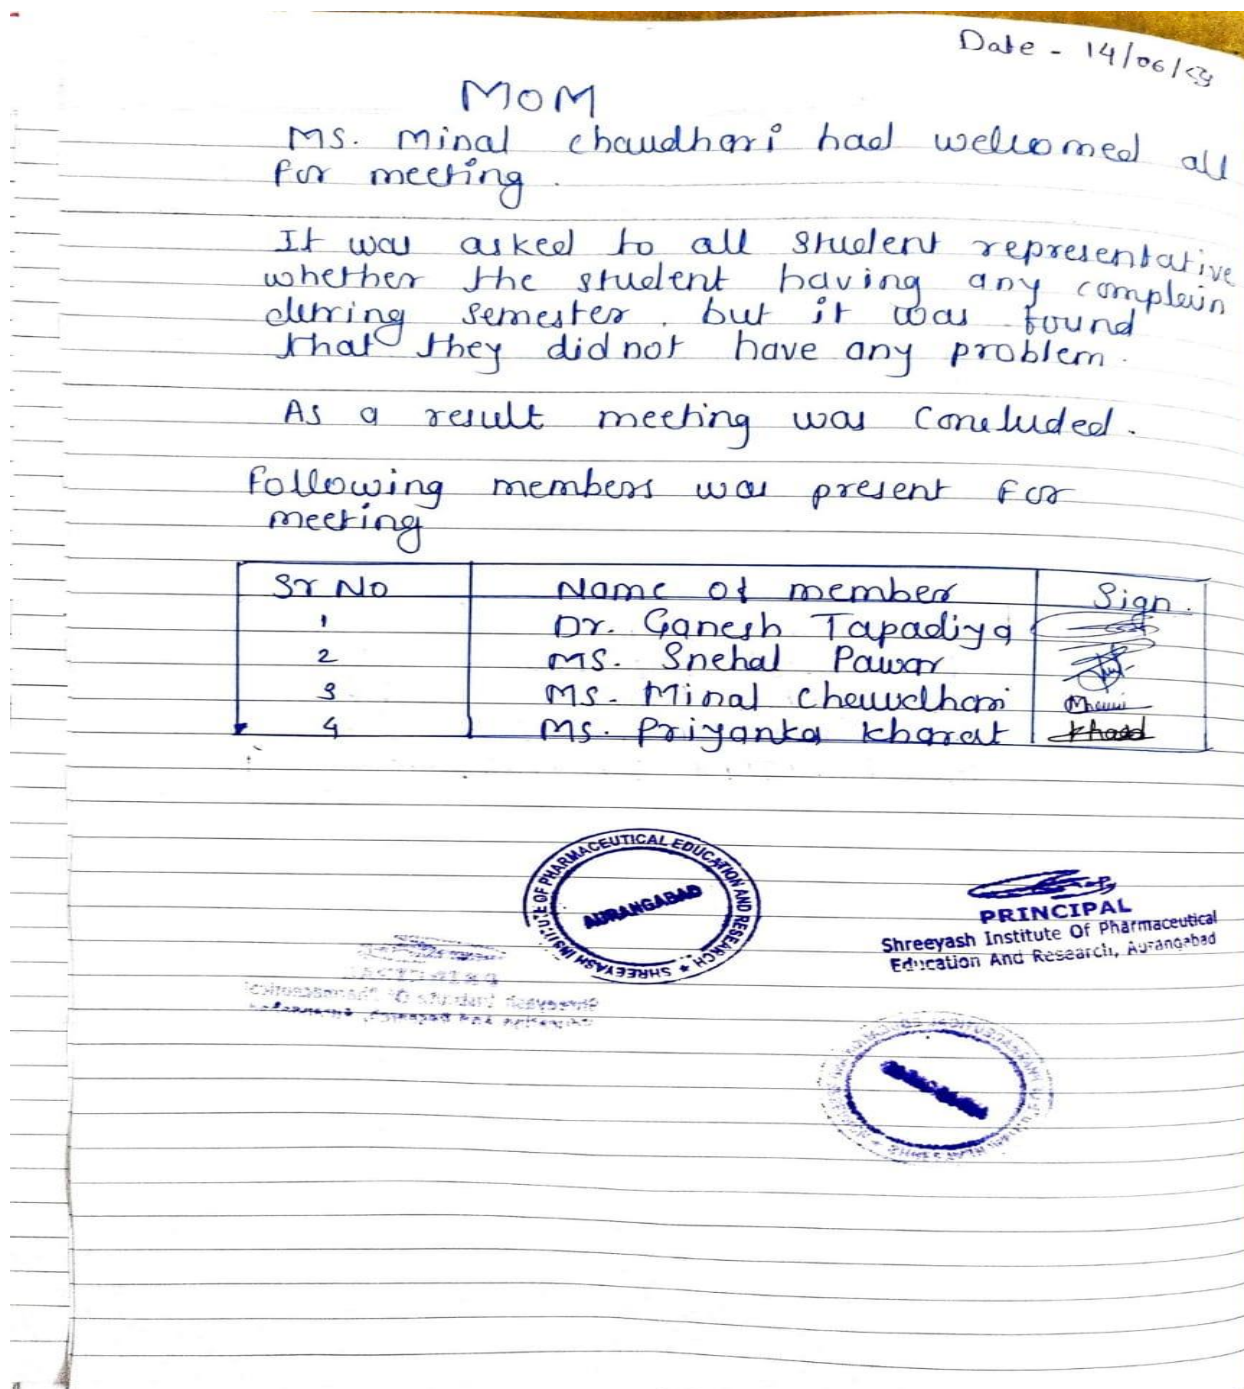 Date - 14/06/23
MOM
Ms. Minal chaudhari had welcomed all
for meeting.
It was asked to all student representative
whether the student having any complain
during semester, but it was found
that they did not have any problem.
As a result meeting was concluded.
Following members was present for
meeting
Sr No Name of member Sign.
1 Dr. Ganesh Tapadiya
2 Ms. Snehal Pawar
3 Ms. Minal Chaudhari
4 Ms. Priyanka Kharat
SHREEYASH INSTITUTE OF PHARMACEUTICAL EDUCATION AND RESEARCH
AURANGABAD
PRINCIPAL
Shreeyash Institute Of Pharmaceutical
Education And Research, Aurangabad